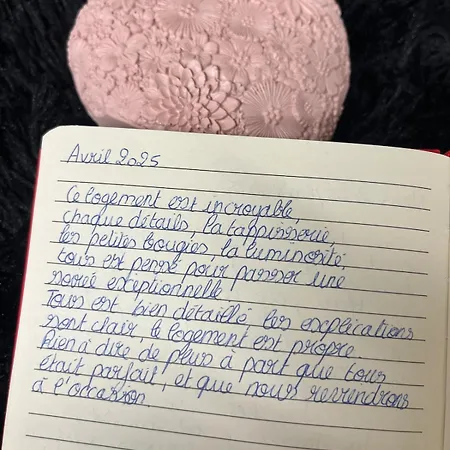 Avril 2025
Ce logement est incroyable,
chaque détails, la tappisserie,
les petites bougies, la luminosité,
tous est pensé pour passer une
soirée exceptionnelle
Tous est bien détaillé, les explications
sont clair, le logement est propre.
Rien a dire de plus à part que tous
était parfait, et que nous reviendrons
à l'occasion